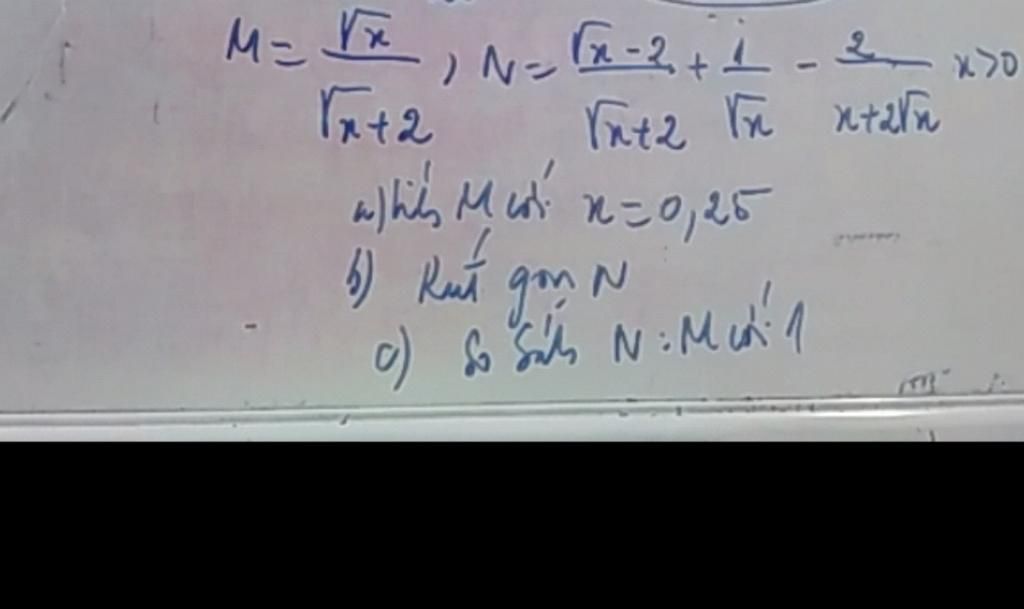 M = √x / (√x + 2) , N = (√x - 2) / (√x + 2) + 1 / √x - 2 / (x + 2√x) x > 0
a) tính M với x = 0,25
b) Rút gọn N
c) So sánh N : M với 1